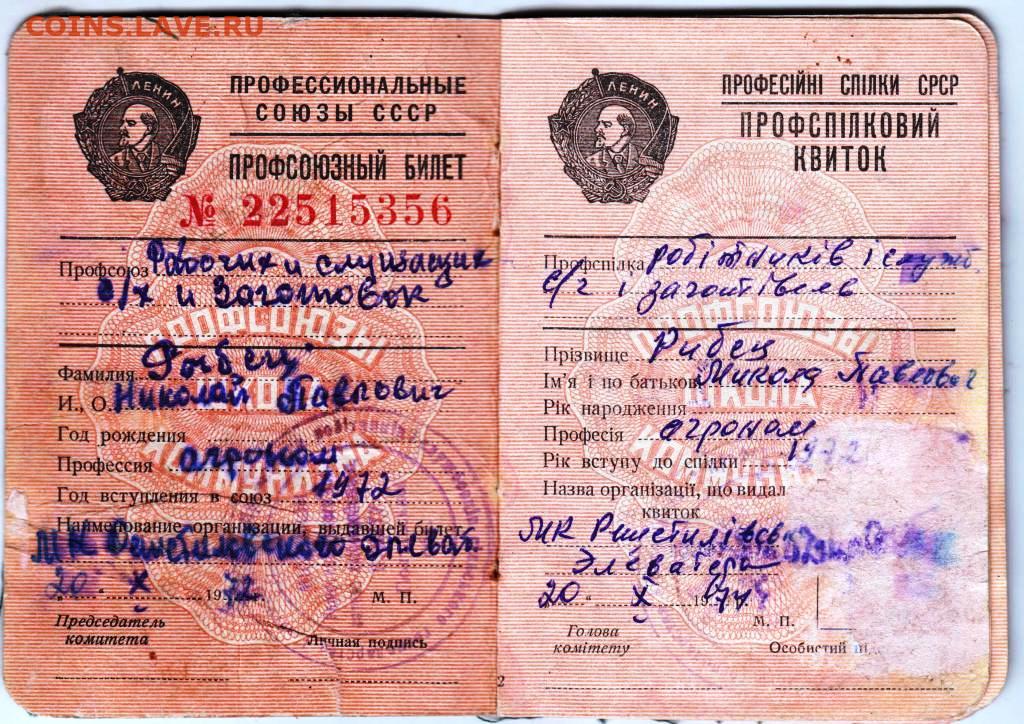 COINS.LAVE.RU
ЛЕНИН
ПРОФЕССИОНАЛЬНЫЕ
СОЮЗЫ СССР
ПРОФСОЮЗНЫЙ БИЛЕТ
№ 22515356
Профсоюз Рабочих и служащих
с/х и Заготовок
ПРОФСОЮЗЫ
ШКОЛА
КОММУНИЗМА
Фамилия Рыбец
И., О. Николай Павлович
Год рождения
Профессия агроном
Год вступления в союз 1972
Наименование организации, выдавшей билет
МК Решетиловского Элеват.
20 X 19
М. П.
Председатель
комитета
Личная подпись
ЛЕНИН
ПРОФЕСІЙНІ СПІЛКИ СРСР
ПРОФСПІЛКОВИЙ
КВИТОК
Профспілка робітників і служб.
с/г і заготівель
ПРОФСОЮЗЫ
ШКОЛА
Прізвище Рибец
Ім'я і по батькові Микола Павлович
Рік народження
Професія агроном
Рік вступу до спілки 1972
Назва організації, що видал
квиток
МК Решетилівсь
Элеватера
20 " X
М. П.
Голова
комітету
Особистий
2